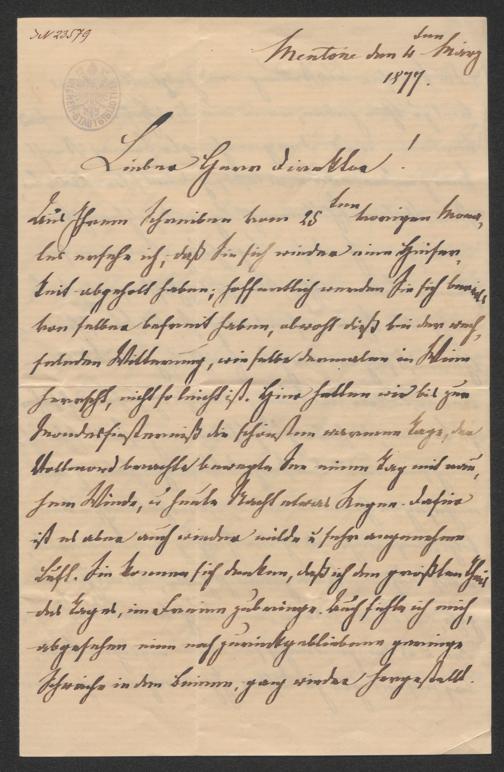 IN 23579
Mentone den 4ten März
1877.
Lieber Herr Direktor!
Aus Ihrem Schreiben vom 25ten vorigen Mona-
tes ersehe ich, daß Sie sich wieder eine Heiser-
keit abgeholt haben; hoffentlich werden Sie sich bereits
von selber befreit haben, obwohl dieß bei der wech-
selnden Witterung, wie selbe dermalen in Wien
herrscht, nicht so leicht ist. Hier hatten wir bis zur
Mondesfinsterniß die schönsten warmen Tage, der
Vollmond brachte bewegte See einen Tag mit rau-
hem Winde, u heute Nacht etwas Regen. Dafür
ist es aber auch wieder milde u sehr angenehme
Luft. Sie können sich denken, daß ich den größten Theil
des Tages, im Freien zubringe. Auch fühle ich mich,
abgesehen eine noch zurückgebliebene geringe
Schwäche in den Beinen, ganz wieder hergestellt.